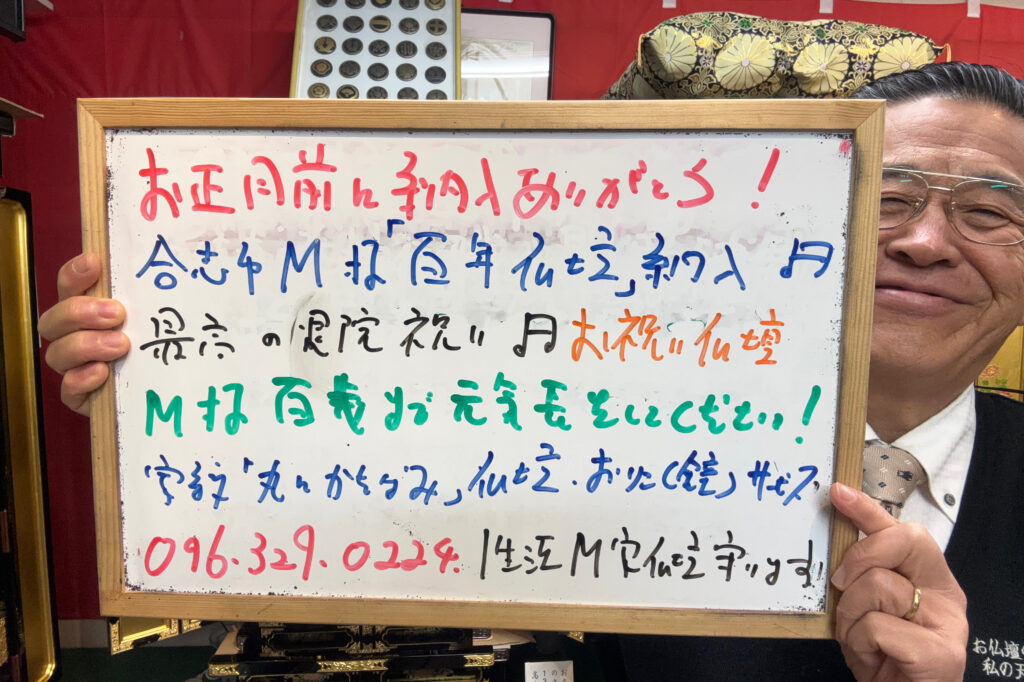 お正月前に納入ありがとう!
合志市M様「百年仏壇」納入 月
最高の退院祝い 月 お祝い仏壇
M様 百歳まで元気長生してください!
家紋「丸にかたばみ」仏壇・おりん(鏧)サービス
096.329.0224. 1生涯M家仏壇守ります
お仏壇の
私の天